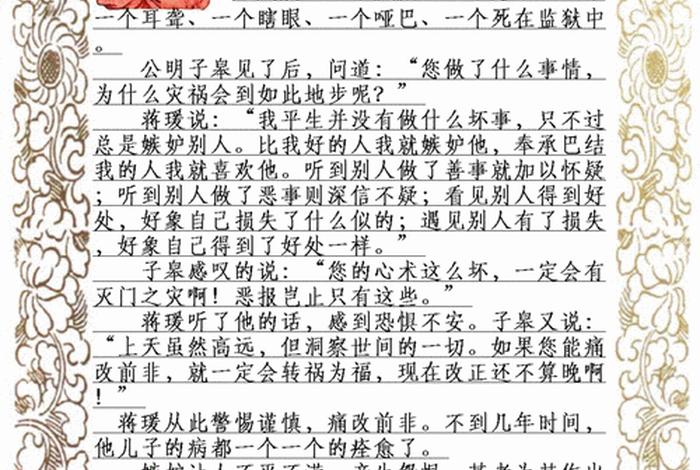 一个耳聋、一个瞎眼、一个哑巴、一个死在监狱中
。
公明子皋见了后，问道：“您做了什么事情，
为什么灾祸会到如此地步呢？”
蒋瑗说：“我平生并没有做什么坏事，只不过
总是嫉妒别人。比我好的人我就嫉妒他，奉承巴结
我的人我就喜欢他。听到别人做了善事就加以怀疑
；听到别人做了恶事则深信不疑；看见别人得到好
处，好象自己损失了什么似的；遇见别人有了损失
，好象自己得到了好处一样。”
子皋感叹的说：“您的心术这么坏，一定会有
灭门之灾啊！恶报岂止只有这些。”
蒋瑗听了他的话，感到恐惧不安。子皋又说：
“上天虽然高远，但洞察世间的一切。如果您能痛
改前非，就一定会转祸为福，现在改正还不算晚啊
！”
蒋瑗从此警惕谨慎，痛改前非。不到几年时间，
他儿子的病都一个一个的痊愈了。